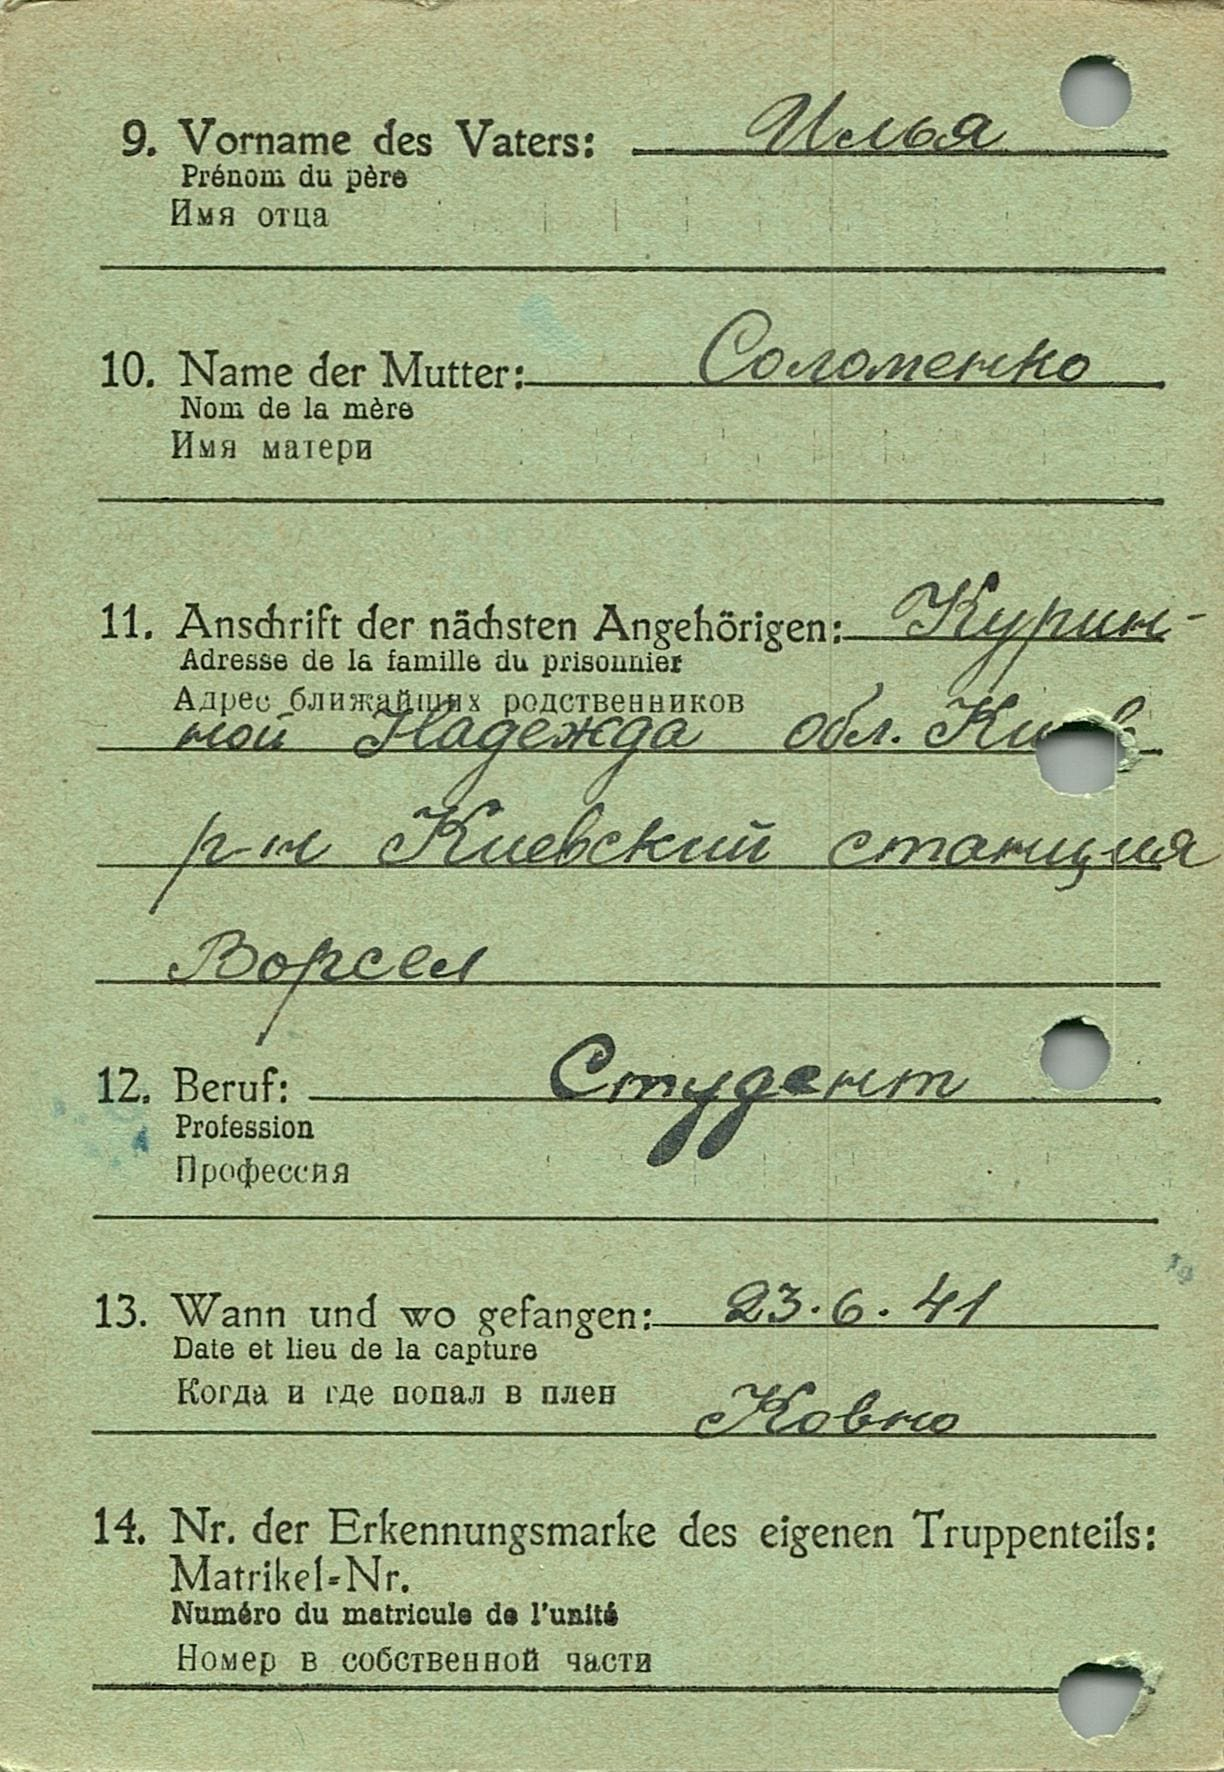 9. Vorname des Vaters: Илья
Prénom du père
Имя отца
10. Name der Mutter: Соломенко
Nom de la mère
Имя матери
11. Anschrift der nächsten Angehörigen: Курин-
Adresse de la famille du prisonnier
Адрес ближайших родственников
ной Надежда обл. Киев
р-н Киевский станция
Ворсел
12. Beruf: Студент
Profession
Профессия
13. Wann und wo gefangen: 23.6.41
Date et lieu de la capture
Когда и где попал в плен
Ковно
14. Nr. der Erkennungsmarke des eigenen Truppenteils:
Matrikel-Nr.
Numéro du matricule de l'unité
Номер в собственной части